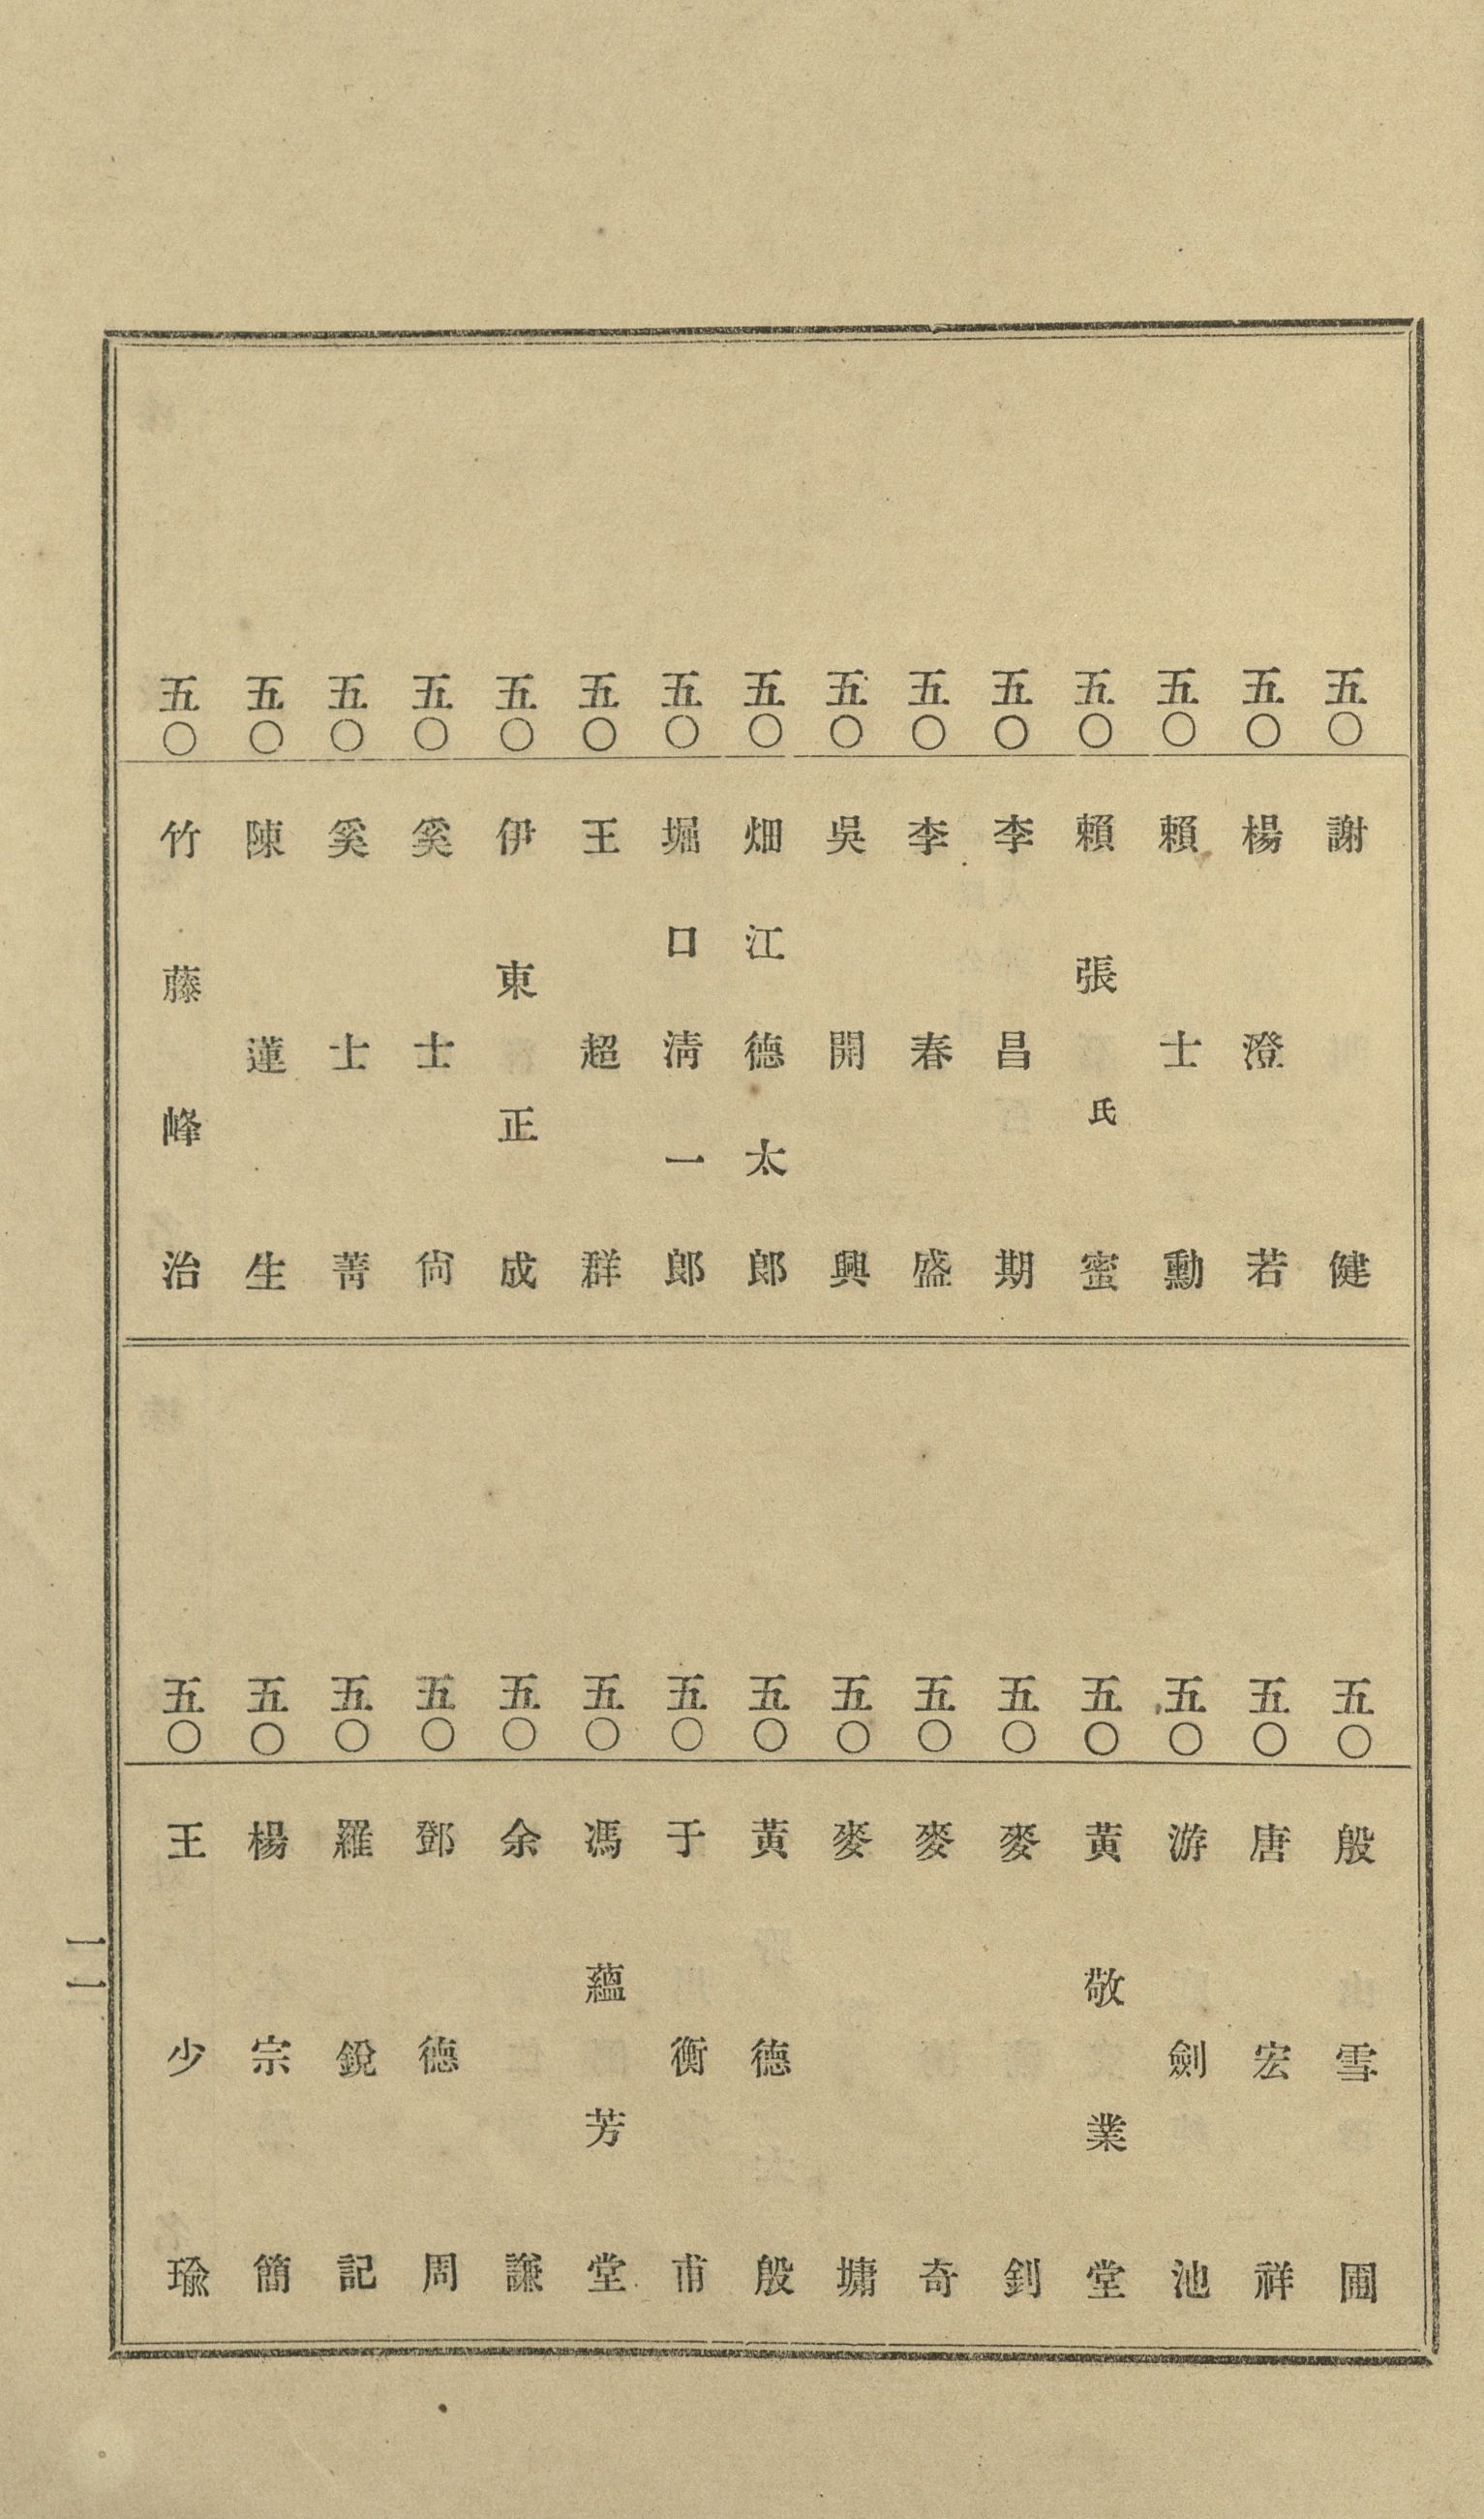 五〇 謝健
五〇 楊澄若
五〇 賴士勳
五〇 賴張氏蜜
五〇 李昌期
五〇 李春盛
五〇 吳開興
五〇 畑江德太郎
五〇 堀口淸一郎
五〇 王超群
五〇 伊東正成
五〇 奚士尙
五〇 奚士菁
五〇 陳蓮生
五〇 竹藤峰治
五〇 殷雪圃
五〇 唐宏祥
五〇 游劍池
五〇 黃敬業堂
五〇 麥釗
五〇 麥奇
五〇 麥墉
五〇 黃德殷
五〇 于衡甫
五〇 馮蘊芳堂
五〇 余謙
五〇 鄧德周
五〇 羅銳記
五〇 楊宗簡
五〇 王少瑜
一一